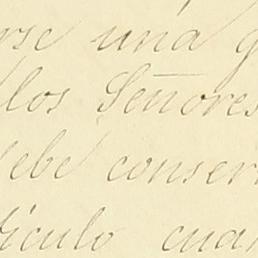 rse una g
los Señores
debe conser
tículo cuan